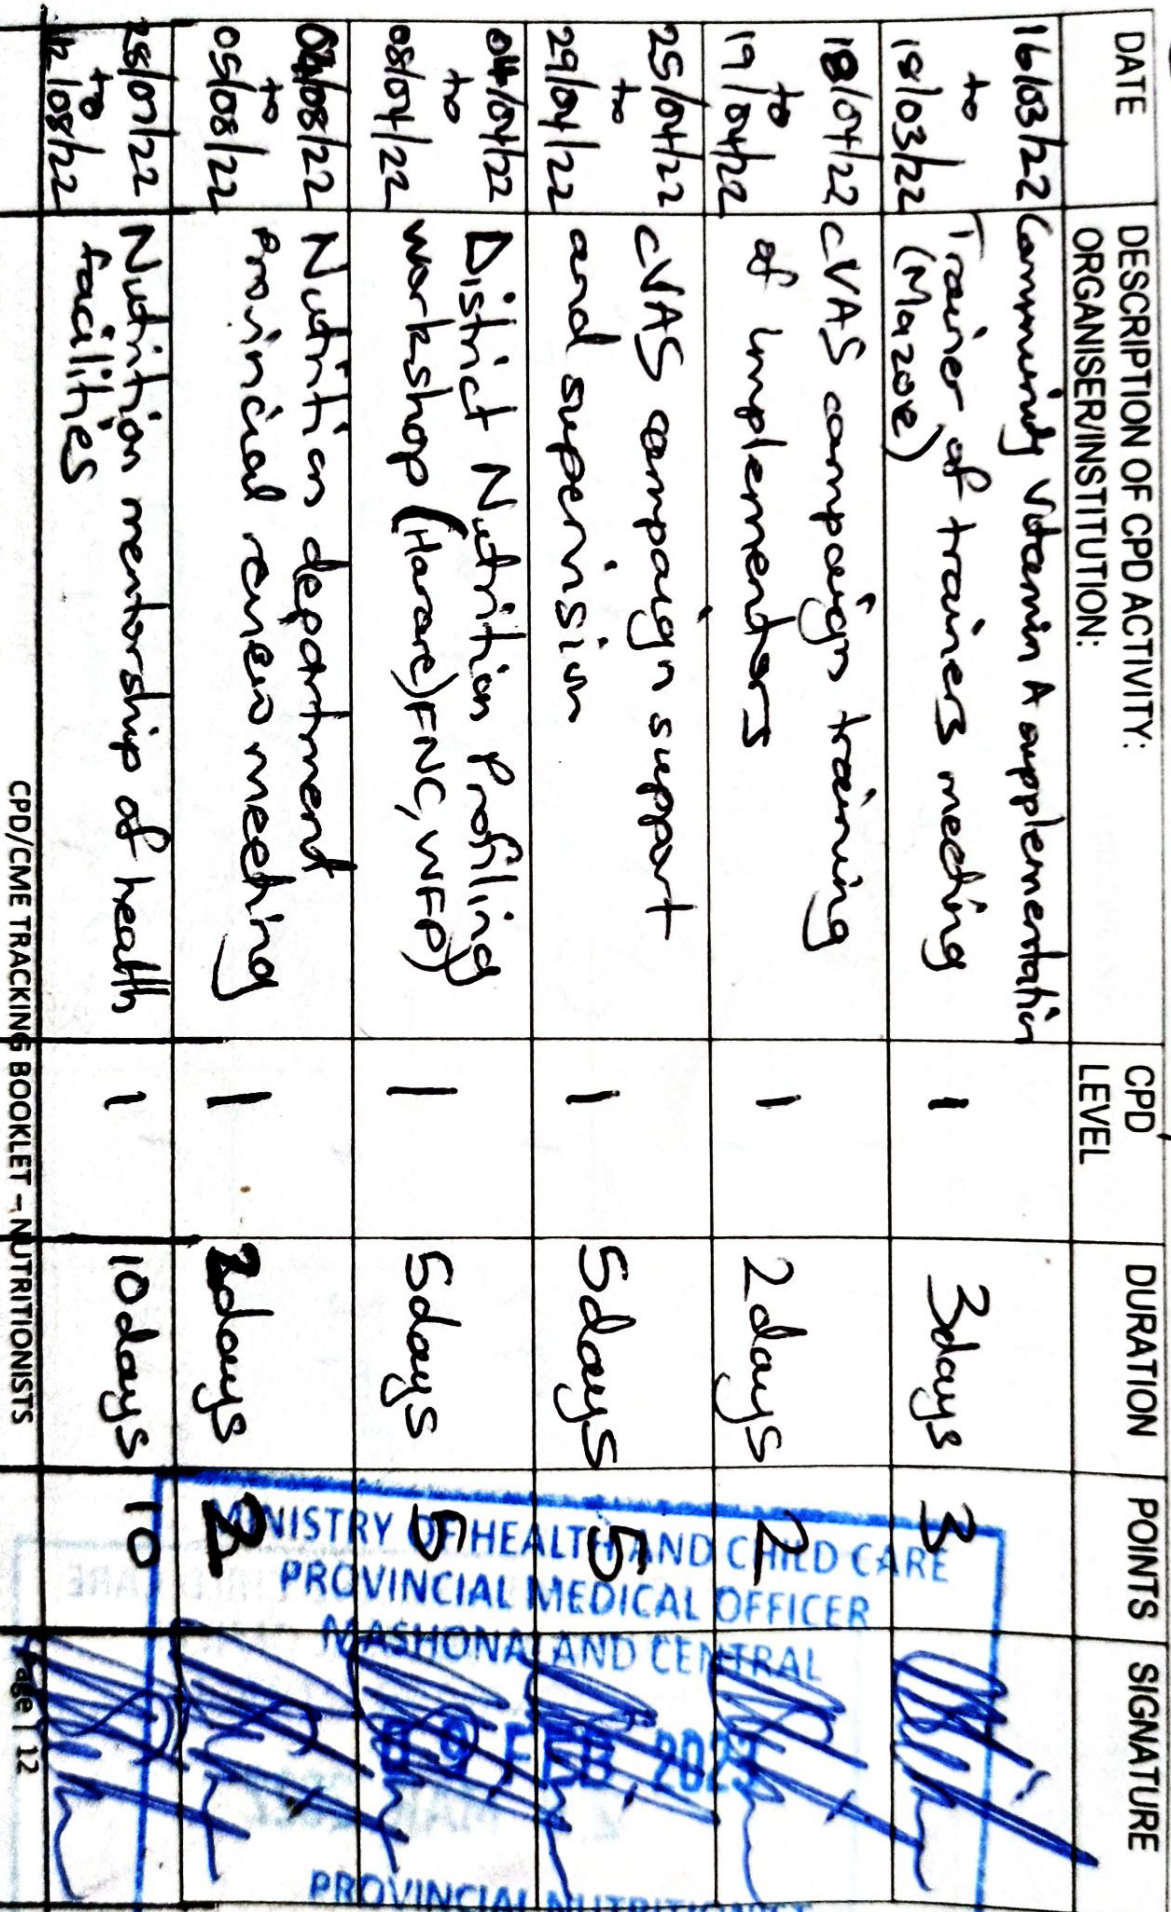 DATE
DESCRIPTION OF CPD ACTIVITY:
ORGANISER/INSTITUTION:
CPD
LEVEL
DURATION
POINTS
SIGNATURE
16/03/22
to
18/03/22
Community Vitamin A supplementation
Trainer of trainers meeting
(Mazoe)
1
3days
3
18/04/22
to
19/04/22
CVAS campaign training
of implementors
1
2days
2
25/04/22
to
29/04/22
CVAS campaign support
and supervision
1
5days
5
04/04/22
to
08/04/22
District Nutrition Profiling
workshop (Harare) FNC, WFP)
1
5days
5
/08/22
to
05/08/22
Nutrition department
Provincial review meeting
1
days
25/07/22
to
12/08/22
Nutrition mentorship of health
facilities
1
10days
10
MINISTRY OF HEALTH AND CHILD CARE
PROVINCIAL MEDICAL OFFICER
MASHONALAND CENTRAL
09 FEB 2023
PROVINCIAL NUTRITIONIST
CPD/CME TRACKING BOOKLET – NUTRITIONISTS
Page | 12